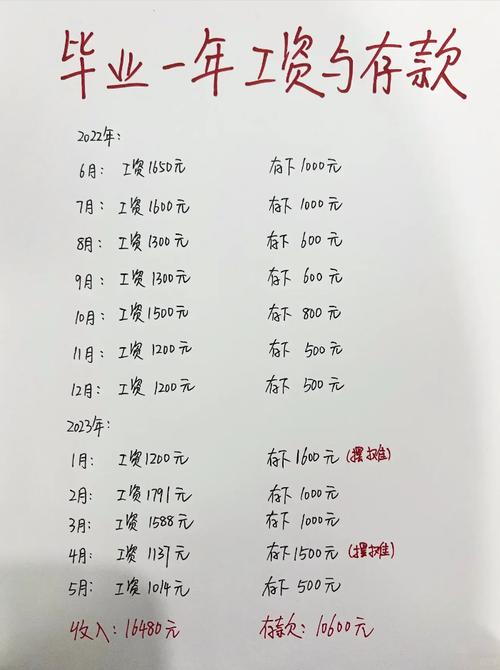 毕业一年工资与存款
2022年:
6月: 工资1650元 存下1000元
7月: 工资1600元 存下1000元
8月: 工资1300元 存下 600元
9月: 工资1300元 存下 600元
10月: 工资1500元 存下 800元
11月: 工资 1200元 存下 500元
12月: 工资 1200元 存下 500元
2023年:
1月: 工资1200元 存下1600元(摆摊)
2月: 工资1791元 存下1000元
3月: 工资1588元 存下1000元
4月: 工资1137元 存下1500元(摆摊)
5月: 工资1014元 存下500元
收入: 16480元 存款: 10600元